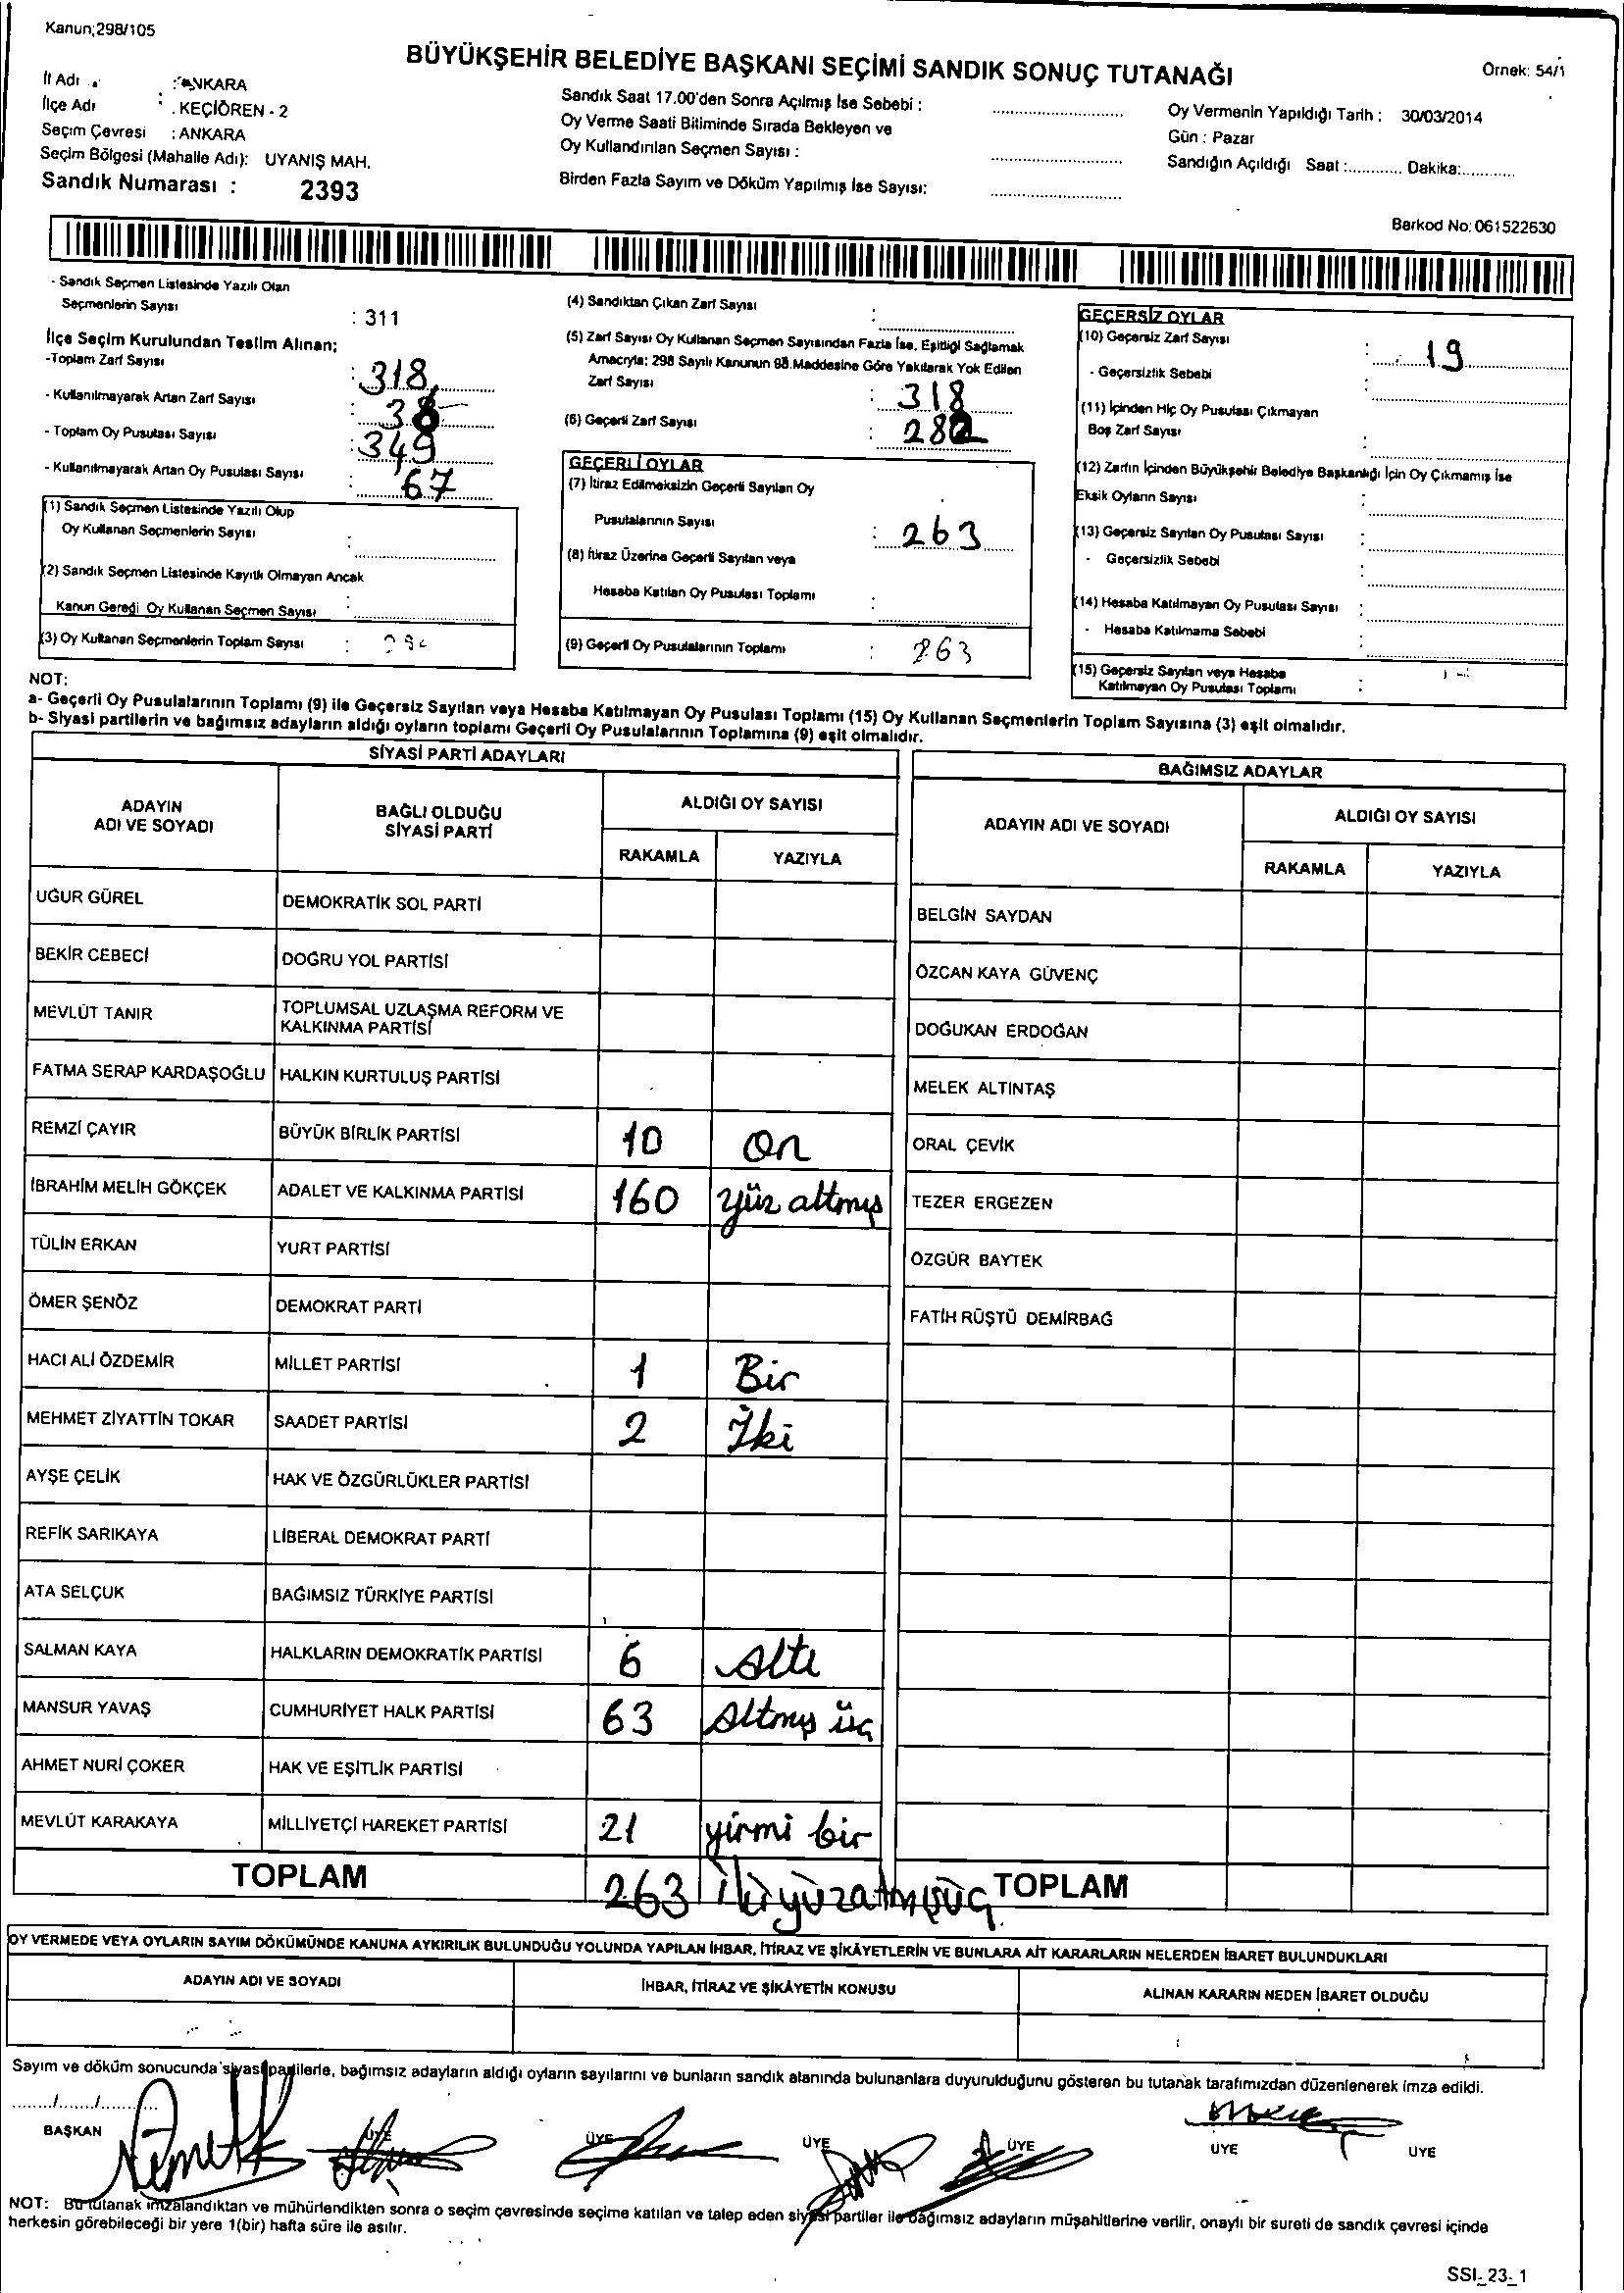 Kanun;298/105
BÜYÜKŞEHİR BELEDİYE BAŞKANI SEÇİMİ SANDIK SONUÇ TUTANAĞI
Örnek: 54/1
İl Adı : ANKARA
İlçe Adı : KEÇİÖREN - 2
Seçim Çevresi : ANKARA
Seçim Bölgesi (Mahalle Adı): UYANIŞ MAH.
Sandık Numarası : 2393
Sandık Saat 17.00'den Sonra Açılmış İse Sebebi :
Oy Verme Saati Bitiminde Sırada Bekleyen ve
Oy Kullandırılan Seçmen Sayısı :
Birden Fazla Sayım ve Döküm Yapılmış İse Sayısı:
Oy Vermenin Yapıldığı Tarih : 30/03/2014
Gün : Pazar
Sandığın Açıldığı Saat :............ Dakika:............
Barkod No: 061522630
- Sandık Seçmen Listesinde Yazılı Olan
Seçmenlerin Sayısı : 311
İlçe Seçim Kurulundan Teslim Alınan;
-Toplam Zarf Sayısı : 318
- Kullanılmayarak Artan Zarf Sayısı :
- Toplam Oy Pusulası Sayısı : 349
- Kullanılmayarak Artan Oy Pusulası Sayısı : 67
(1) Sandık Seçmen Listesinde Yazılı Olup
Oy Kullanan Seçmenlerin Sayısı :
(2) Sandık Seçmen Listesinde Kayıtlı Olmayan Ancak
Kanun Gereği Oy Kullanan Seçmen Sayısı :
(3) Oy Kullanan Seçmenlerin Toplam Sayısı :
(4) Sandıktan Çıkan Zarf Sayısı :
(5) Zarf Sayısı Oy Kullanan Seçmen Sayısından Fazla İse, Eşitliği Sağlamak
Amacıyla; 298 Sayılı Kanunun 98.Maddesine Göre Yakılarak Yok Edilen
Zarf Sayısı : 318
(6) Geçerli Zarf Sayısı : 282
GEÇERLİ OYLAR
(7) İtiraz Edilmeksizin Geçerli Sayılan Oy
Pusulalarının Sayısı : 263
(8) İtiraz Üzerine Geçerli Sayılan veya
Hesaba Katılan Oy Pusulası Toplamı :
(9) Geçerli Oy Pusulalarının Toplamı : 263
GEÇERSİZ OYLAR
(10) Geçersiz Zarf Sayısı : 19
- Geçersizlik Sebebi :
(11) İçinden Hiç Oy Pusulası Çıkmayan
Boş Zarf Sayısı :
(12) Zarfın İçinden Büyükşehir Belediye Başkanlığı İçin Oy Çıkmamış İse
Eksik Oyların Sayısı :
(13) Geçersiz Sayılan Oy Pusulası Sayısı :
- Geçersizlik Sebebi :
(14) Hesaba Katılmayan Oy Pusulası Sayısı :
- Hesaba Katılmama Sebebi :
(15) Geçersiz Sayılan veya Hesaba
Katılmayan Oy Pusulası Toplamı :
NOT:
a- Geçerli Oy Pusulalarının Toplamı (9) ile Geçersiz Sayılan veya Hesaba Katılmayan Oy Pusulası Toplamı (15) Oy Kullanan Seçmenlerin Toplam Sayısına (3) eşit olmalıdır.
b- Siyasi partilerin ve bağımsız adayların aldığı oyların toplamı Geçerli Oy Pusulalarının Toplamına (9) eşit olmalıdır.
SİYASİ PARTİ ADAYLARI
ADAYIN ADI VE SOYADI
BAĞLI OLDUĞU SİYASİ PARTİ
ALDIĞI OY SAYISI
RAKAMLA YAZIYLA
UĞUR GÜREL DEMOKRATİK SOL PARTİ
BEKİR CEBECİ DOĞRU YOL PARTİSİ
MEVLÜT TANIR TOPLUMSAL UZLAŞMA REFORM VE
KALKINMA PARTİSİ
FATMA SERAP KARDAŞOĞLU HALKIN KURTULUŞ PARTİSİ
REMZİ ÇAYIR BÜYÜK BİRLİK PARTİSİ 10 On
İBRAHİM MELİH GÖKÇEK ADALET VE KALKINMA PARTİSİ 160 Yüz altmış
TÜLİN ERKAN YURT PARTİSİ
ÖMER ŞENÖZ DEMOKRAT PARTİ
HACI ALİ ÖZDEMİR MİLLET PARTİSİ 1 Bir
MEHMET ZİYATTİN TOKAR SAADET PARTİSİ 2 İki
AYŞE ÇELİK HAK VE ÖZGÜRLÜKLER PARTİSİ
REFİK SARIKAYA LİBERAL DEMOKRAT PARTİ
ATA SELÇUK BAĞIMSIZ TÜRKİYE PARTİSİ
SALMAN KAYA HALKLARIN DEMOKRATİK PARTİSİ 6 Altı
MANSUR YAVAŞ CUMHURİYET HALK PARTİSİ 63 Altmış üç
AHMET NURİ ÇOKER HAK VE EŞİTLİK PARTİSİ
MEVLÜT KARAKAYA MİLLİYETÇİ HAREKET PARTİSİ 21 yirmi bir
TOPLAM 263 ikiyüzatmışüç
BAĞIMSIZ ADAYLAR
ADAYIN ADI VE SOYADI
ALDIĞI OY SAYISI
RAKAMLA YAZIYLA
BELGİN SAYDAN
ÖZCAN KAYA GÜVENÇ
DOĞUKAN ERDOĞAN
MELEK ALTINTAŞ
ORAL ÇEVİK
TEZER ERGEZEN
ÖZGÜR BAYTEK
FATİH RÜŞTÜ DEMİRBAĞ
TOPLAM
OY VERMEDE VEYA OYLARIN SAYIM DÖKÜMÜNDE KANUNA AYKIRILIK BULUNDUĞU YOLUNDA YAPILAN İHBAR, İTİRAZ VE ŞİKÂYETLERİN VE BUNLARA AİT KARARLARIN NELERDEN İBARET BULUNDUKLARI
ADAYIN ADI VE SOYADI
İHBAR, İTİRAZ VE ŞİKÂYETİN KONUSU
ALINAN KARARIN NEDEN İBARET OLDUĞU
Sayım ve döküm sonucunda siyasi partilerle, bağımsız adayların aldığı oyların sayılarını ve bunların sandık alanında bulunanlara duyurulduğunu gösteren bu tutanak tarafımızdan düzenlenerek imza edildi.
....../....../............
BAŞKAN ÜYE ÜYE ÜYE ÜYE ÜYE ÜYE
NOT: Bu tutanak imzalandıktan ve mühürlendikten sonra o seçim çevresinde seçime katılan ve talep eden siyasi partiler ile bağımsız adayların müşahitlerine verilir, onaylı bir sureti de sandık çevresi içinde
herkesin görebileceği bir yere 1(bir) hafta süre ile asılır.
SSI_23_1